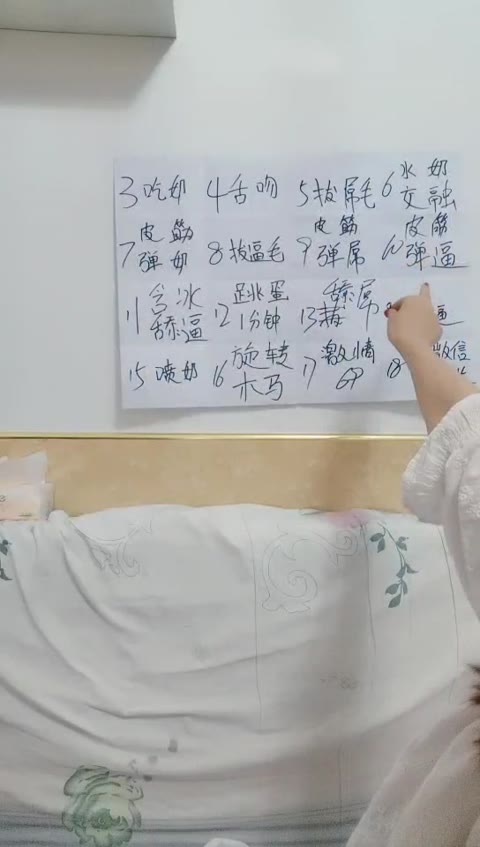 3吃奶 4舌吻 5拔屌毛 6水奶交融
7皮筋弹奶 8拔逼毛 9皮筋弹屌 10皮筋弹逼
11含冰舔逼 12跳蛋1分钟 13舔屌 逼
15喷奶 16旋转木马 17激情69 18微信